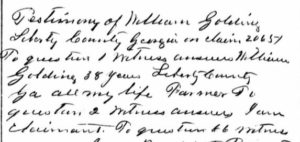 Testimony of William Golding
Liberty County Georgia on claim 20651
To question 1 Witness answers William
Golding 58 years Liberty County
Ga all my life Farmer To
question 2 Witness answers I am
claimant. To question 66 Witness